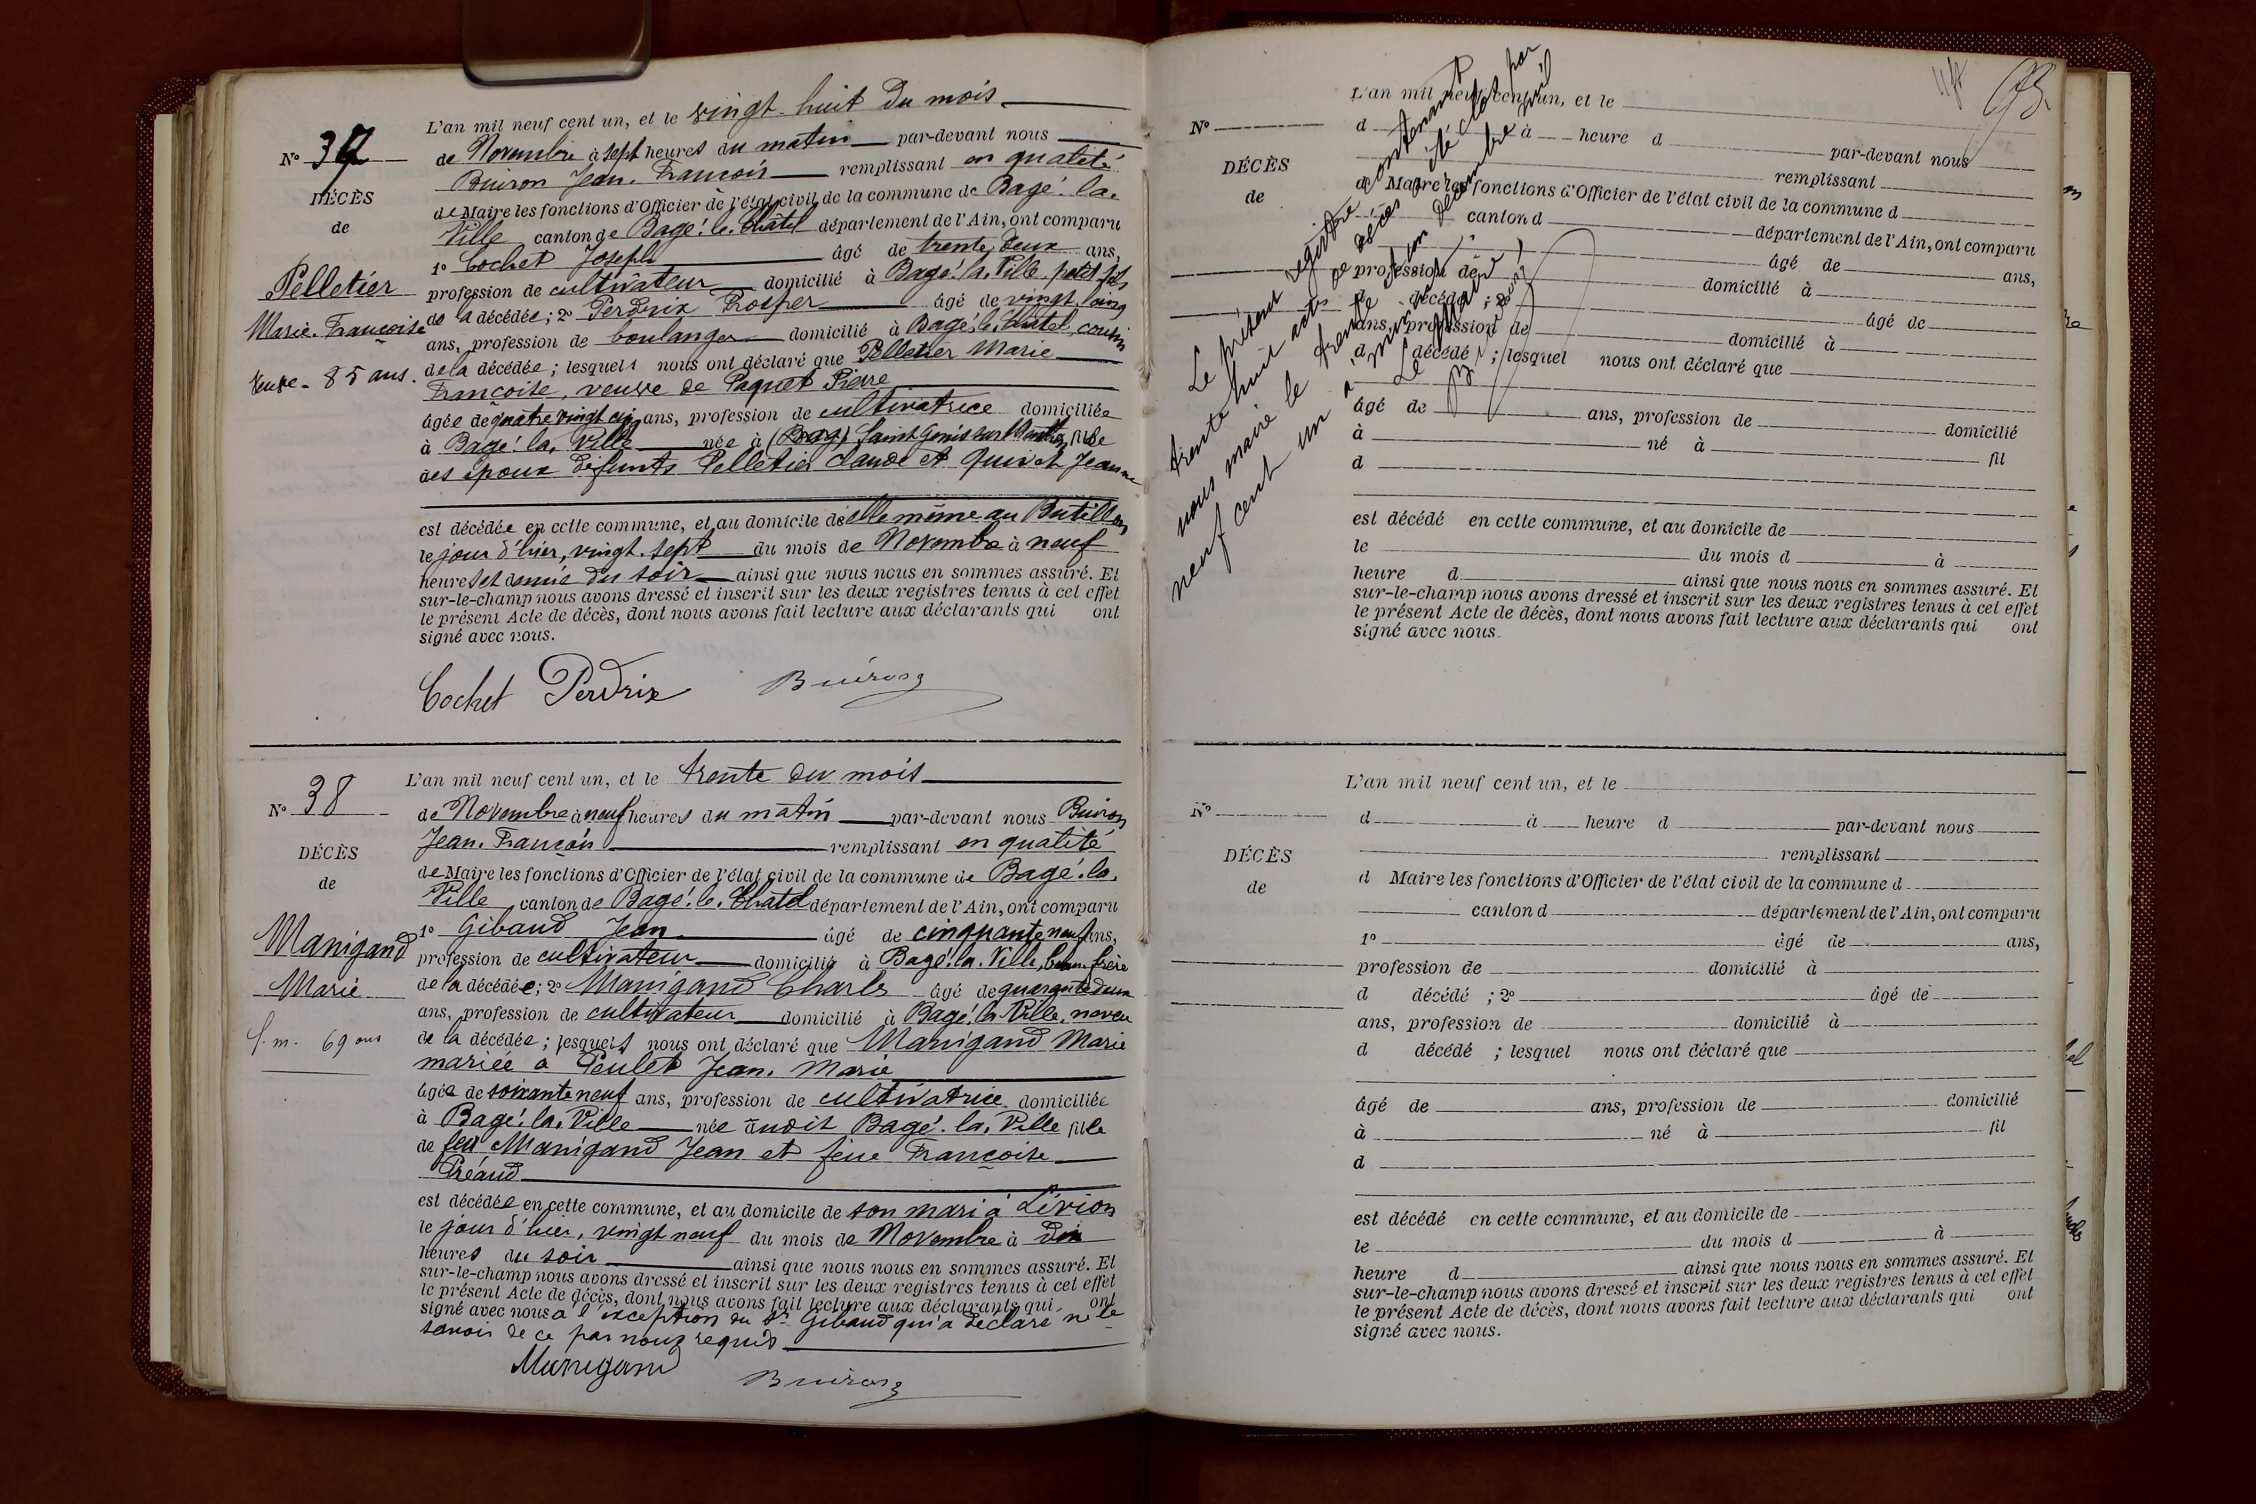 L'an mil neuf cent un, et le vingt-huit du mois
N° 37
de Novembre à sept heures du matin par-devant nous
Buiron Jean-François remplissant en qualité
DÉCÈS
de Maire les fonctions d'Officier de l'état civil de la commune de Bagé-la-
de
Ville canton de Bagé-le-Châtel département de l'Ain, ont comparu
1° Cochet Joseph âgé de trente-deux ans,
Pelletier
profession de cultivateur domicilié à Bagé-la-Ville, petit-fils
Marie-Françoise
de la décédée ; 2° Perdrix Prosper âgé de vingt-cinq
ans, profession de boulanger domicilié à Bagé-le-Châtel, cousin
veuve - 85 ans.
de la décédée ; lesquels nous ont déclaré que Pelletier Marie
Françoise, veuve de Paquet Pierre
âgée de quatre-vingt-cinq ans, profession de cultivatrice domiciliée
à Bagé-la-Ville née à (Bagé) Saint Genis sur Menthon fille
des époux défunts Pelletier Claude et Quivet Jeanne
est décédée en cette commune, et au domicile d'elle même au Butillon
le jour d'hier, vingt-sept du mois de Novembre à neuf
heures et demie du soir ainsi que nous nous en sommes assuré. Et
sur-le-champ nous avons dressé et inscrit sur les deux registres tenus à cet effet
le présent Acte de décès, dont nous avons fait lecture aux déclarants qui ont
signé avec nous.
Cochet Perdrix Buiron
L'an mil neuf cent un, et le trente du mois
N° 38
de Novembre à neuf heures du matin par-devant nous Buiron
Jean-François remplissant en qualité
DÉCÈS
de Maire les fonctions d'Officier de l'état civil de la commune de Bagé-la-
de
Ville canton de Bagé-le-Châtel département de l'Ain, ont comparu
1° Gibaud Jean âgé de cinquante neuf ans,
Manigand
profession de cultivateur domicilié à Bagé-la-Ville, beau-frère
Marie
de la décédée ; 2° Manigand Charles âgé de quarante deux
ans, profession de cultivateur domicilié à Bagé-la-Ville, neveu
f. m. 69 ans
de la décédée ; lesquels nous ont déclaré que Manigand Marie
mariée à Peulet Jean-Marie
âgée de soixante neuf ans, profession de cultivatrice domiciliée
à Bagé-la-Ville née au dit Bagé-la-Ville fille
de feu Manigand Jean et feue Françoise
Préaud
est décédée en cette commune, et au domicile de son mari à Livion
le jour d'hier, vingt neuf du mois de Novembre à dix
heures du soir ainsi que nous nous en sommes assuré. Et
sur-le-champ nous avons dressé et inscrit sur les deux registres tenus à cet effet
le présent Acte de décès, dont nous avons fait lecture aux déclarants qui ont
signé avec nous à l'exception du Sr Gibaud qui a déclaré ne le
savoir de ce par nous requis
Manigand Buiron
93.
Le présent registre contenant
trente huit actes de décès a été clos par
nous maire le trente et un décembre mil
neuf cent un à minuit.
Le Maire
Buiron
L'an mil neuf cent un, et le
N°
d à heure d par-devant nous
DÉCÈS
remplissant
de
d Maire les fonctions d'Officier de l'état civil de la commune d
canton d département de l'Ain, ont comparu
âgé de ans,
profession de domicilié à
d décédé ; 2° âgé de
ans, profession de domicilié à
d décédé ; lesquel nous ont déclaré que
âgé de ans, profession de domicilié
à né à fil
d
est décédé en cette commune, et au domicile de
le du mois d à
heure d ainsi que nous nous en sommes assuré. Et
sur-le-champ nous avons dressé et inscrit sur les deux registres tenus à cet effet
le présent Acte de décès, dont nous avons fait lecture aux déclarants qui ont
signé avec nous.
L'an mil neuf cent un, et le
N°
d à heure d par-devant nous
DÉCÈS
remplissant
de
d Maire les fonctions d'Officier de l'état civil de la commune d
canton d département de l'Ain, ont comparu
1° âgé de ans,
profession de domicilié à
d décédé ; 2° âgé de
ans, profession de domicilié à
d décédé ; lesquel nous ont déclaré que
âgé de ans, profession de domicilié
à né à fil
d
est décédé en cette commune, et au domicile de
le du mois d à
heure d ainsi que nous nous en sommes assuré. Et
sur-le-champ nous avons dressé et inscrit sur les deux registres tenus à cet effet
le présent Acte de décès, dont nous avons fait lecture aux déclarants qui ont
signé avec nous.